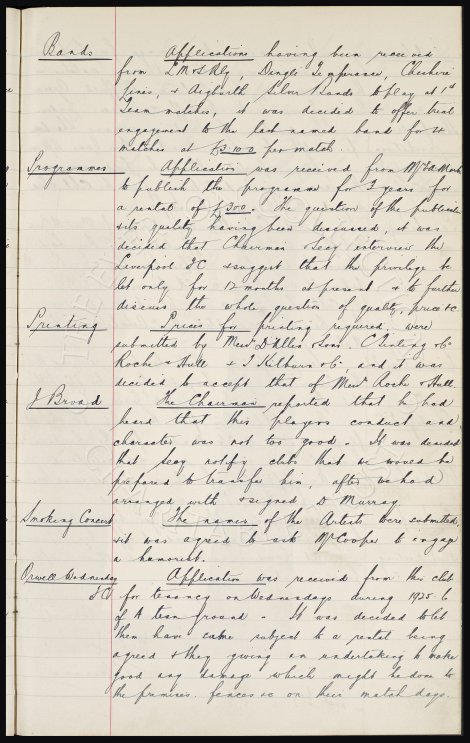 Bands Applications having been received
from LM&S Rly, Dingle Temperance, Cheshire
Lines, & Aigburth Silver Bands to play at 1st
Team matches, it was decided to offer trial
engagement to the last named band for 4
matches at £3 10 0 per match.
Programmes Application was received from Mr
to publish the programme for 3 years for
a rental of £300. The question of the publication
& its quality having been discussed, it was
decided that Chairman & Secy interview the
Liverpool FC & suggest that the privilege be
let only for 12 months at present & to further
discuss the whole question of quality, price &c
Printing Prices for printing required, were
submitted by Messrs D Allen & Sons, C Tinling & Co
Roche & Hull & J Kilburn & Co, and it was
decided to accept that of Messrs Roche & Hull.
J Broad The Chairman reported that he had
heard that this players conduct and
character was not too good - It was decided
that Secy notify clubs that we would be
prepared to transfer him, after we had
arranged with & signed, D Murray.
Smoking Concert The names of the Artists were submitted,
& it was agreed to ask Mr Cooper to engage
a humorist.
Orwell Wednesday Application was received from this club
FC for tenancy on Wednesdays during 1925-6
of A team ground - It was decided to let
them have same subject to a rental being
agreed & they giving an undertaking to make
good any damage which might be done to
the premises, fences &c on their match days.